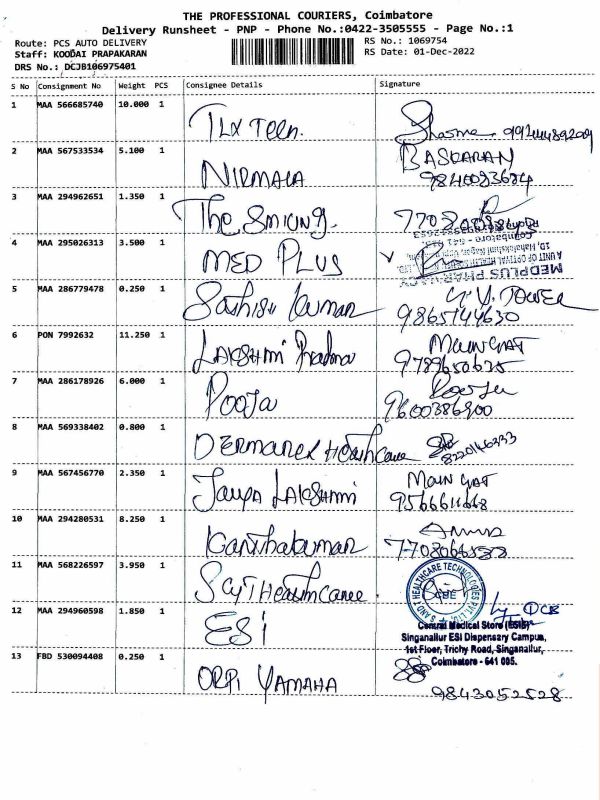 THE PROFESSIONAL COURIERS, Coimbatore
Delivery Runsheet - PNP - Phone No.:0422-3505555 - Page No.:1
Route: PCS AUTO DELIVERY
RS No.: 1069754
Staff: KOODAI PRAPAKARAN
RS Date: 01-Dec-2022
DRS No.: DCJB106975401
S No Consignment No Weight PCS Consignee Details Signature
1 MAA 566685740 10.000 1
2 MAA 567533534 5.100 1 NIRMALA BASKARAN
3 MAA 294962651 1.350 1 The
4 MAA 295026313 3.500 1 MED PLUS
MEDPLUS PHARMACY
5 MAA 286779478 0.250 1 Kumar
9865144630
6 PON 7992632 11.250 1 LAKSHMI
9789650625
7 MAA 286178926 6.000 1 POOJA Pooja
9600386900
8 MAA 569338402 0.800 1 Healthcare
8220146333
9 MAA 567456770 2.350 1 LAKSHMI
9566611668
10 MAA 294280531 8.250 1 Kanthakumar
11 MAA 568226597 3.950 1 Healthcare
HEALTHCARE TECHNOLOGIES PVT. LTD.
CBE
12 MAA 294960598 1.850 1 ESI
Central Medical Store (ESIS)
Singanallur ESI Dispensary Campus,
1st Floor, Trichy Road, Singanallur,
Coimbatore - 641 005.
13 FBD 530094408 0.250 1 ORPI YAMAHA
9843052528